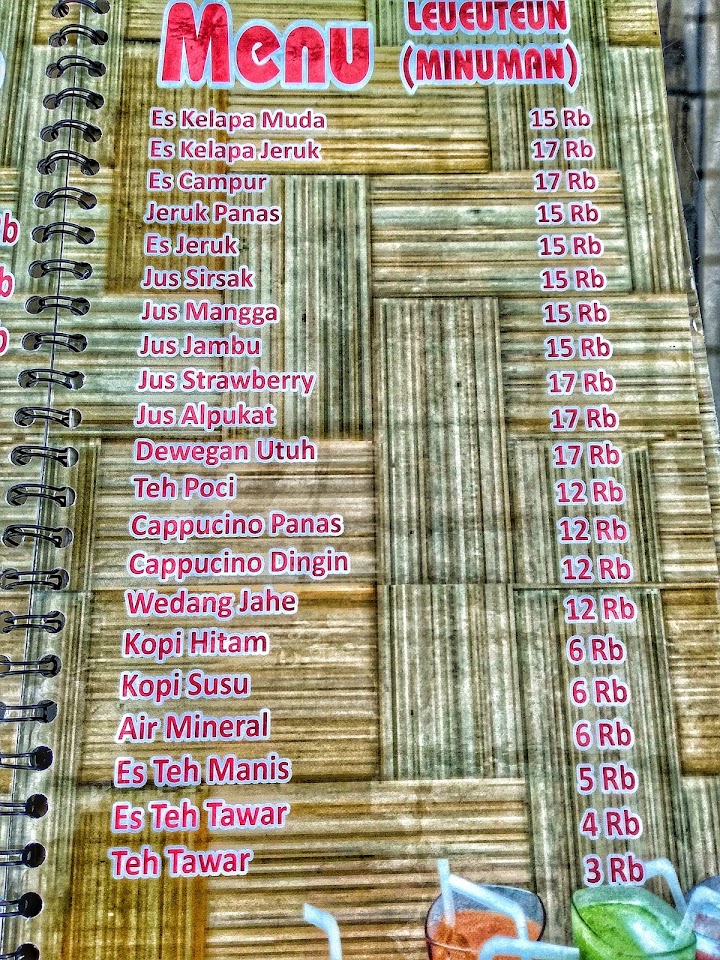 Menu
LEUEUTEUN
(MINUMAN)
Es Kelapa Muda 15 Rb
Es Kelapa Jeruk 17 Rb
Es Campur 17 Rb
Jeruk Panas 15 Rb
Es Jeruk 15 Rb
Jus Sirsak 15 Rb
Jus Mangga 15 Rb
Jus Jambu 15 Rb
Jus Strawberry 17 Rb
Jus Alpukat 17 Rb
Dewegan Utuh 17 Rb
Teh Poci 12 Rb
Cappucino Panas 12 Rb
Cappucino Dingin 12 Rb
Wedang Jahe 12 Rb
Kopi Hitam 6 Rb
Kopi Susu 6 Rb
Air Mineral 6 Rb
Es Teh Manis 5 Rb
Es Teh Tawar 4 Rb
Teh Tawar 3 Rb